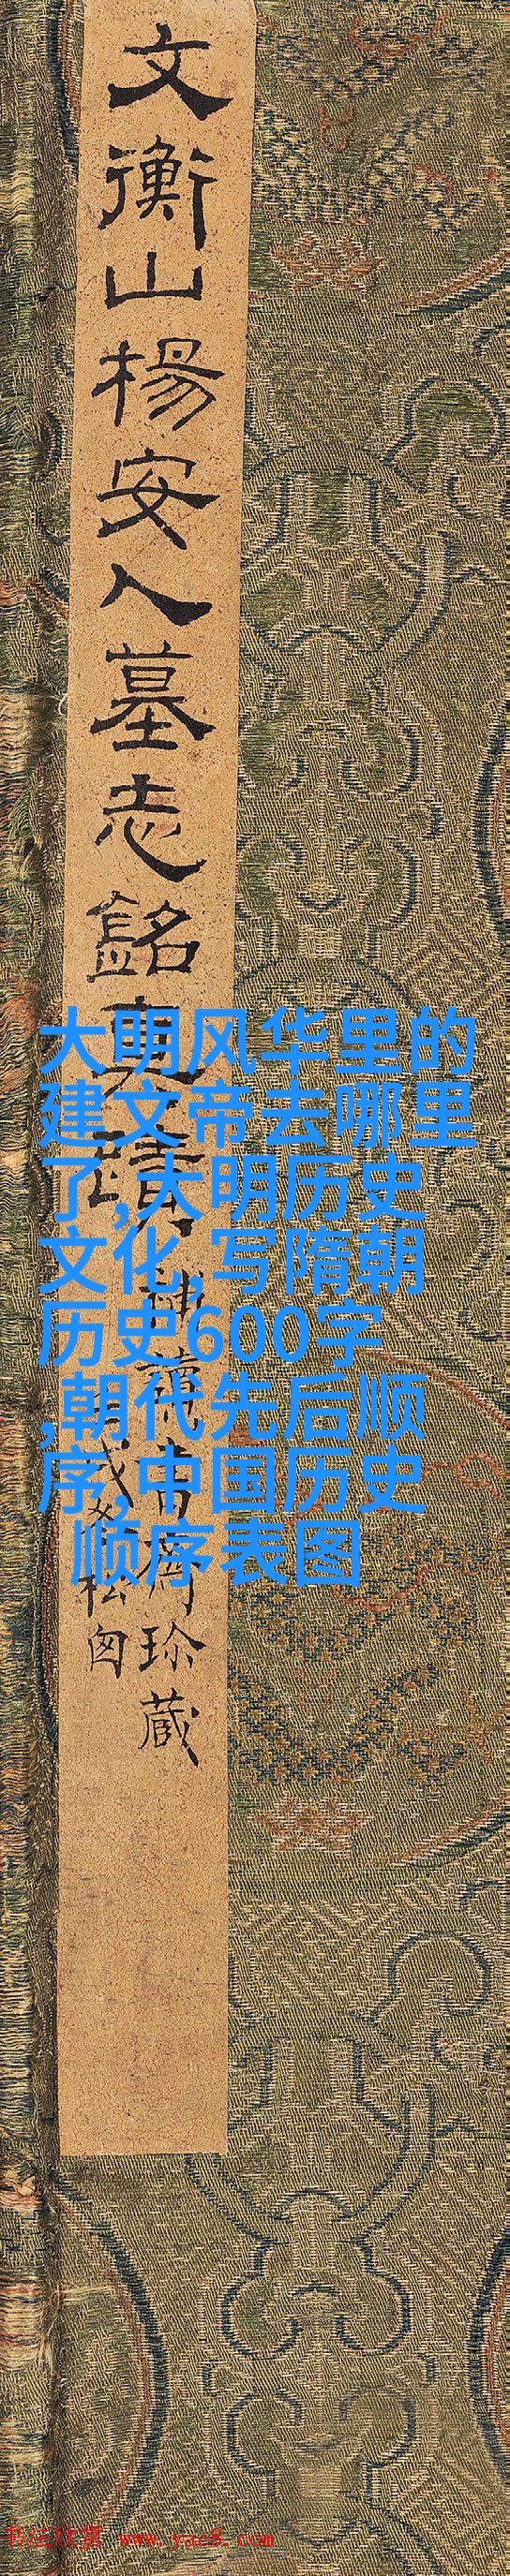 文衡山楊安人墓志銘真蹟
珍藏
大明风华里的
建文帝去哪里
了,大明历史
文化,写隋朝
历史600字
,朝代先后顺
序,中国历史
顺序表图
书法欣赏 www.yac8.com